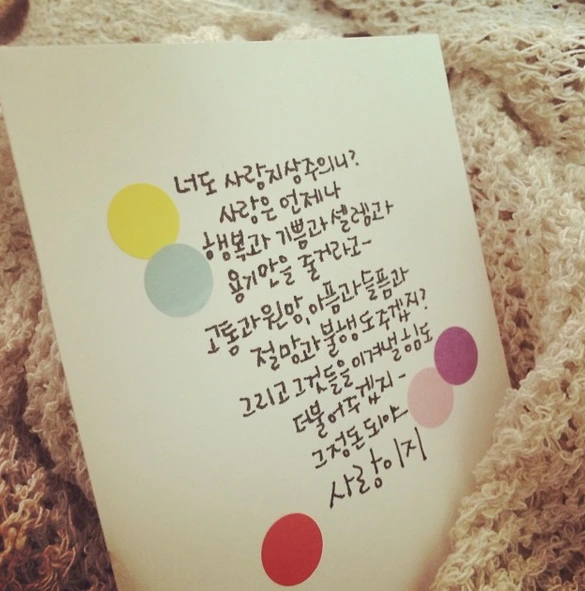 너도 사랑지상주의니?
사랑은 언제나
행복과 기쁨과 설렘과
용기만을 줄거라고-
고통과 원망, 아픔과 슬픔과
절망과 불행도 주겠지?
그리고 그것들을 이겨낼 힘도
더불어 주겠지-
그정돈 되야-
사랑이지